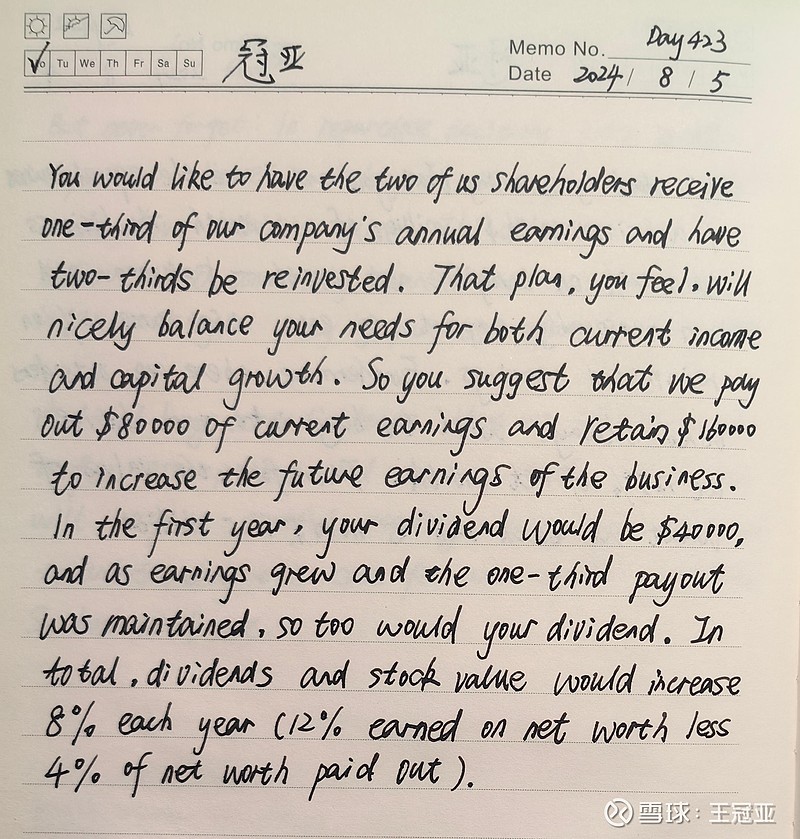 Mo Tu We Th Fr Sa Su
冠亚
Memo No. Day423
Date 2024 / 8 / 5
You would like to have the two of us shareholders receive
one-third of our company's annual earnings and have
two-thirds be reinvested. That plan, you feel, will
nicely balance your needs for both current income
and capital growth. So you suggest that we pay
out $80000 of current earnings and retain $160000
to increase the future earnings of the business.
In the first year, your dividend would be $40000,
and as earnings grew and the one-third payout
was maintained, so too would your dividend. In
total, dividends and stock value would increase
8% each year (12% earned on net worth less
4% of net worth paid out).
雪球:王冠亚